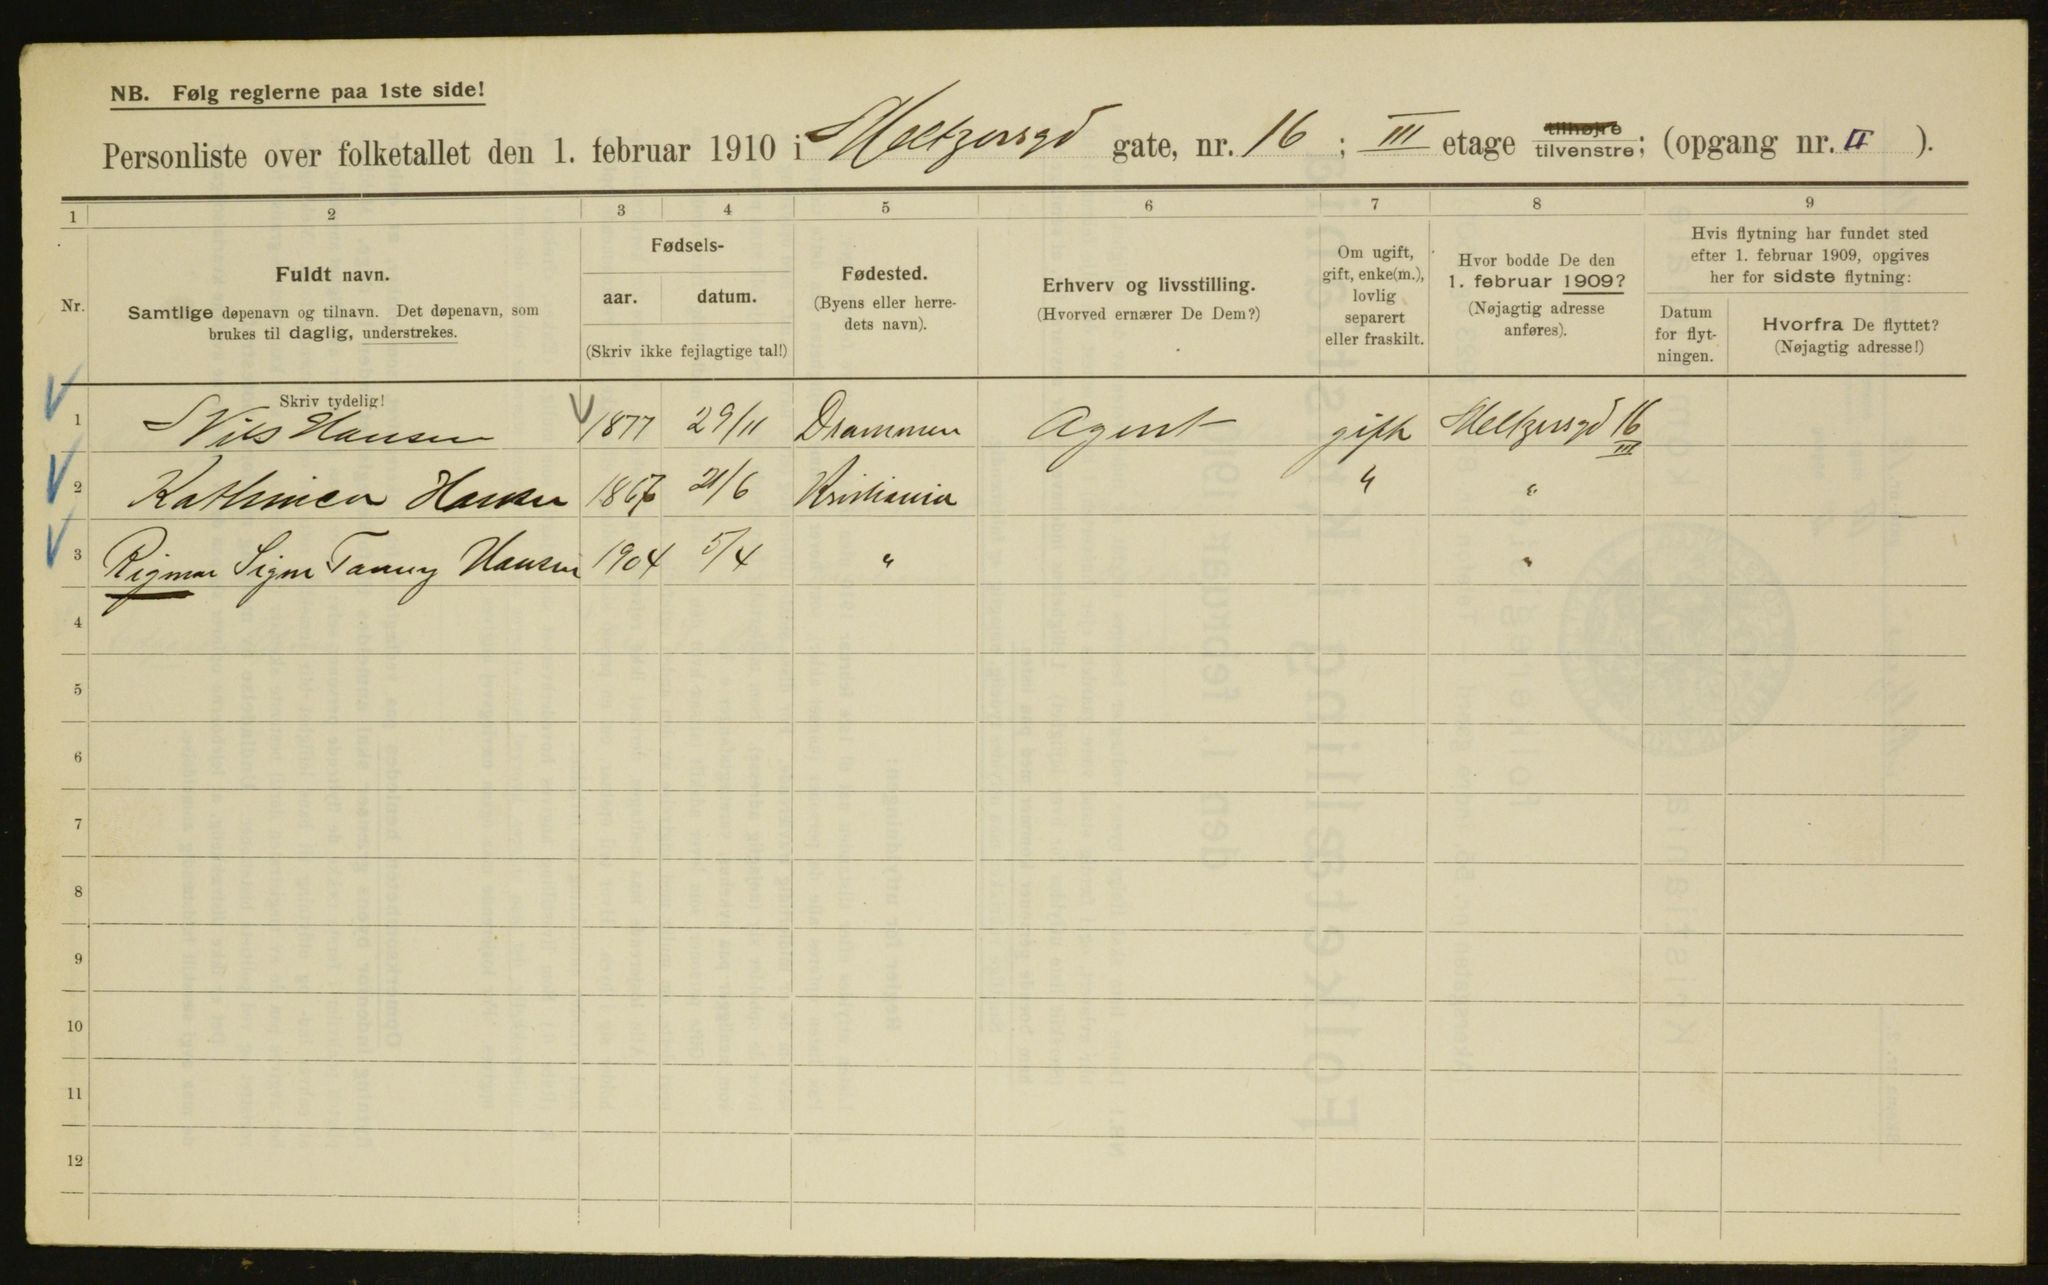 NB. Følg reglerne paa 1ste side!
Personliste over folketallet den 1. februar 1910 i Meltzersgd gate, nr. 16 ; III etage tilhøjre tilvenstre; (opgang nr. II ).
1 2 3 4 5 6 7 8 9
Nr.
Fuldt navn.
Samtlige døpenavn og tilnavn. Det døpenavn, som
brukes til daglig, understrekes.
Fødsels-
aar. datum.
(Skriv ikke fejlagtige tal!)
Fødested.
(Byens eller herre-
dets navn).
Erhverv og livsstilling.
(Hvorved ernærer De Dem?)
Om ugift,
gift, enke(m.),
lovlig
separert
eller fraskilt.
Hvor bodde De den
1. februar 1909?
(Nøjagtig adresse
anføres).
Hvis flytning har fundet sted
efter 1. februar 1909, opgives
her for sidste flytning:
Datum
for flyt-
ningen.
Hvorfra De flyttet?
(Nøjagtig adresse!)
Skriv tydelig!
1 Nils Hansen 1877 29/11 Drammen Agent gift Meltzersgd 16 III
2 Hansen 1867 21/6 Kristiania " "
3 Rigmor Signe Fanny Hansen 1904 5/4 " "
4
5
6
7
8
9
10
11
12